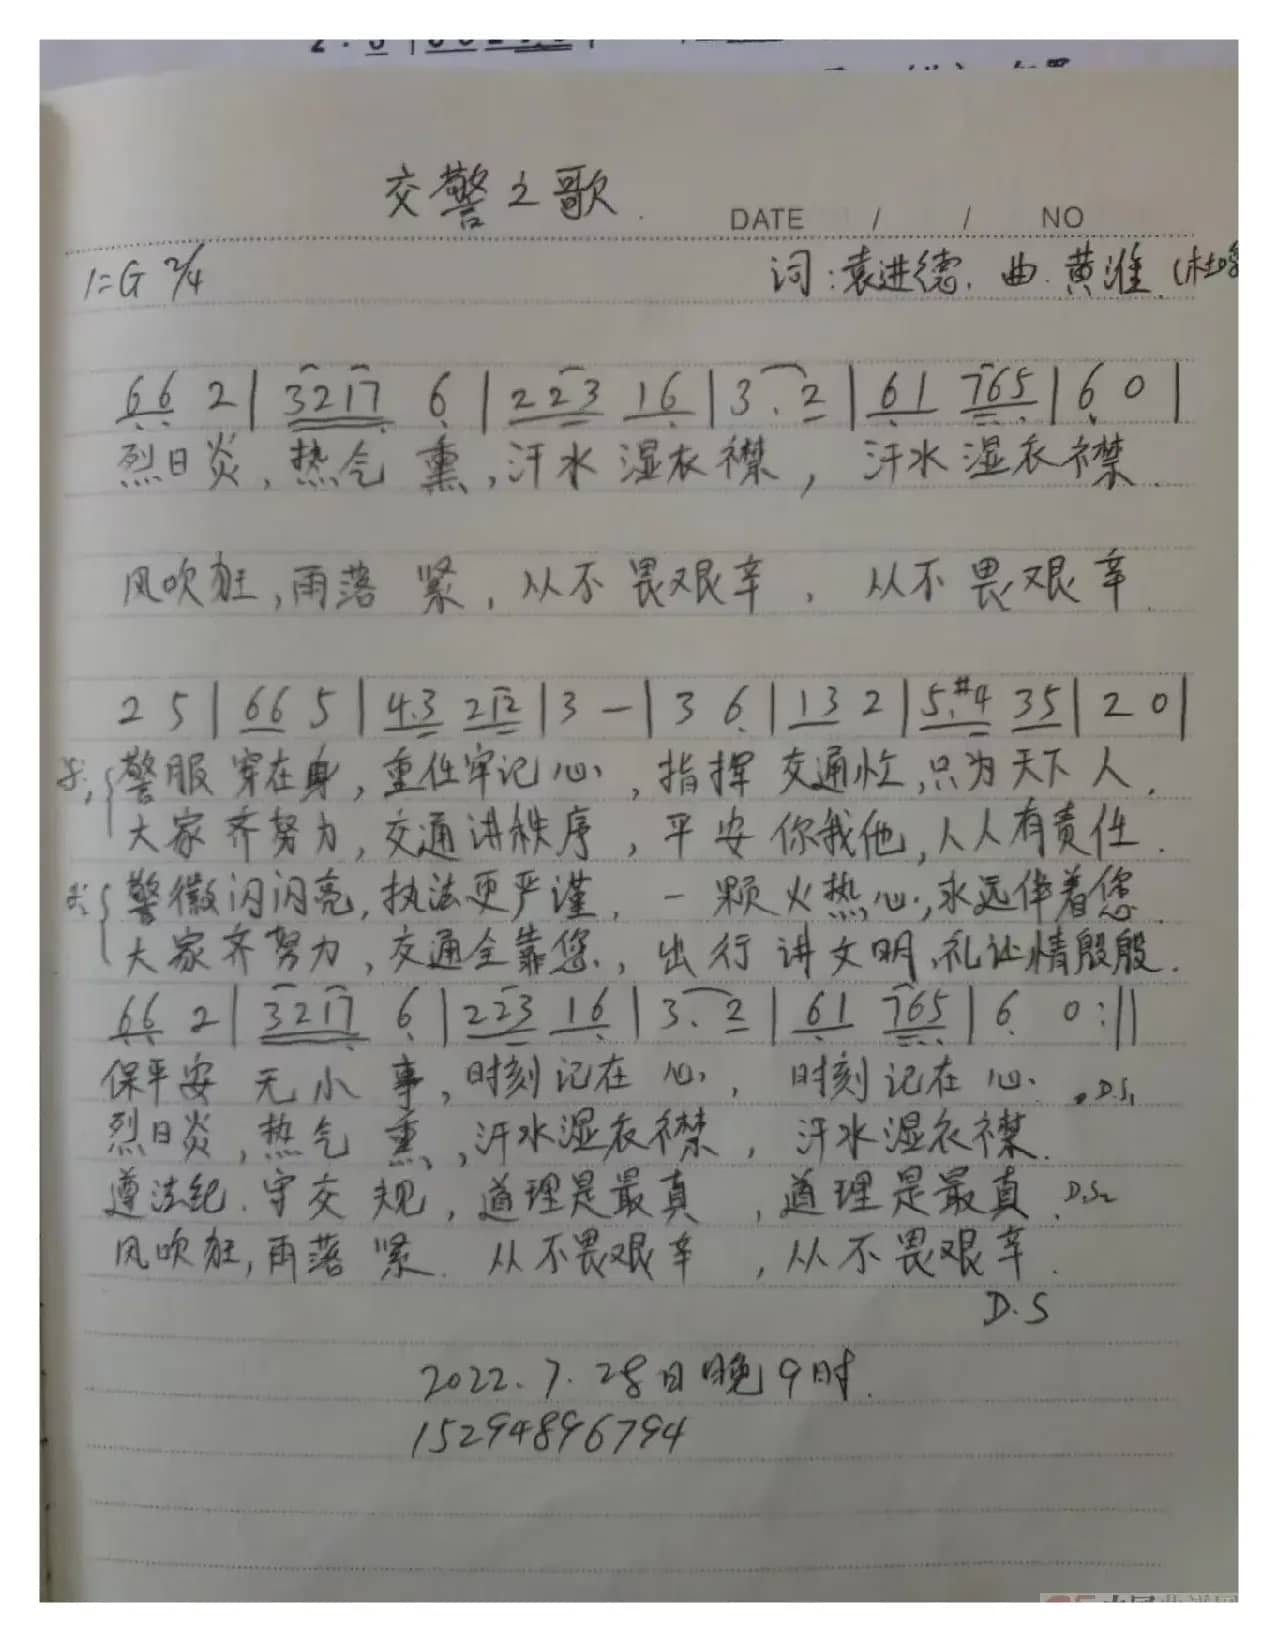 交警之歌.
DATE / / NO
1=G 2/4 词:袁进德. 曲.黄淮.(杜鸣
66 2 | 3217 6 | 223 16 | 3. 2 | 61 765 | 6 0 |
烈日炎,热气 熏,汗水 湿衣襟, 汗水 湿衣襟.
风吹狂,雨落 紧,从不 畏艰辛, 从不 畏艰辛.
2 5 | 66 5 | 4.3 212 | 3 — | 3 6 | 13 2 | 5.#4 35 | 2 0 |
警服 穿在身,重任牢记心,指挥 交通忙,只为天下人.
大家 齐努力,交通讲秩序,平安 你我他,人人有责任.
警徽闪闪亮,执法更严谨,一颗火热心,永远伴着您.
大家齐努力,交通全靠您,出行讲文明,礼让情殷殷.
66 2 | 3217 6 | 223 16 | 3. 2 | 61 765 | 6 0 :||
保平安 无小事,时刻记在心, 时刻记在心. D.S1
烈日炎,热气 熏,汗水湿衣襟, 汗水湿衣襟.
遵法纪.守交规,道理是最真,道理是最真. D.S2
风吹狂,雨落紧.从不畏艰辛,从不畏艰辛.
D.S
2022.7.28日晚9时.
15294896794